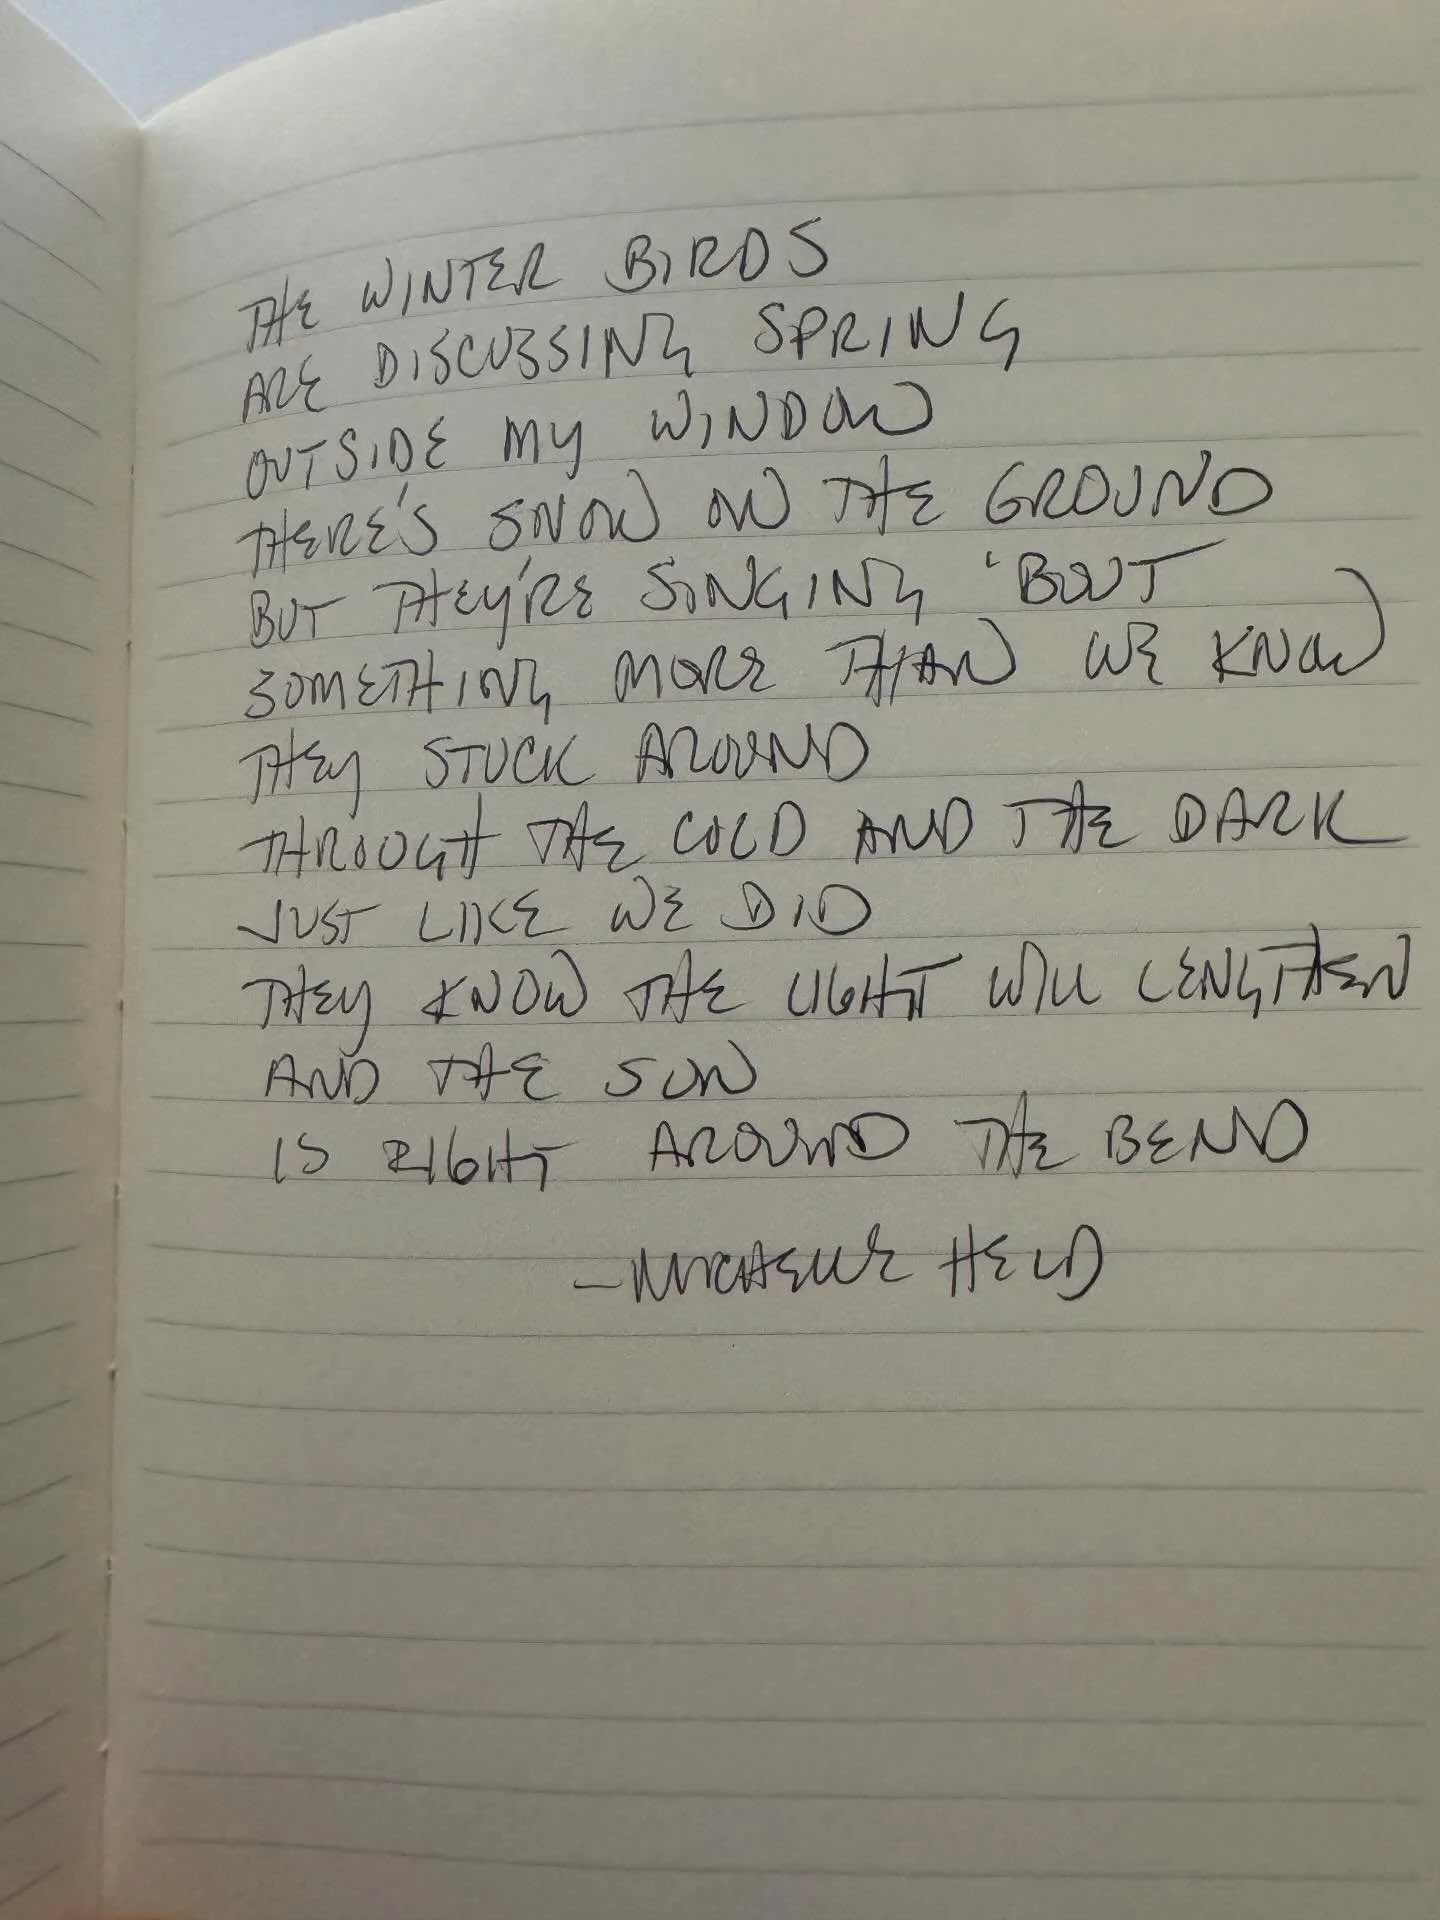 THE WINTER BIRDS
ARE DISCUSSING SPRING
OUTSIDE MY WINDOW
THERE'S SNOW ON THE GROUND
BUT THEY'RE SINGING 'BOUT
SOMETHING MORE THAN WE KNOW
THEY STUCK AROUND
THROUGH THE COLD AND THE DARK
JUST LIKE WE DID
THEY KNOW THE LIGHT WILL LENGTHEN
AND THE SUN
IS RIGHT AROUND THE BEND
– MICHAELLE HELD